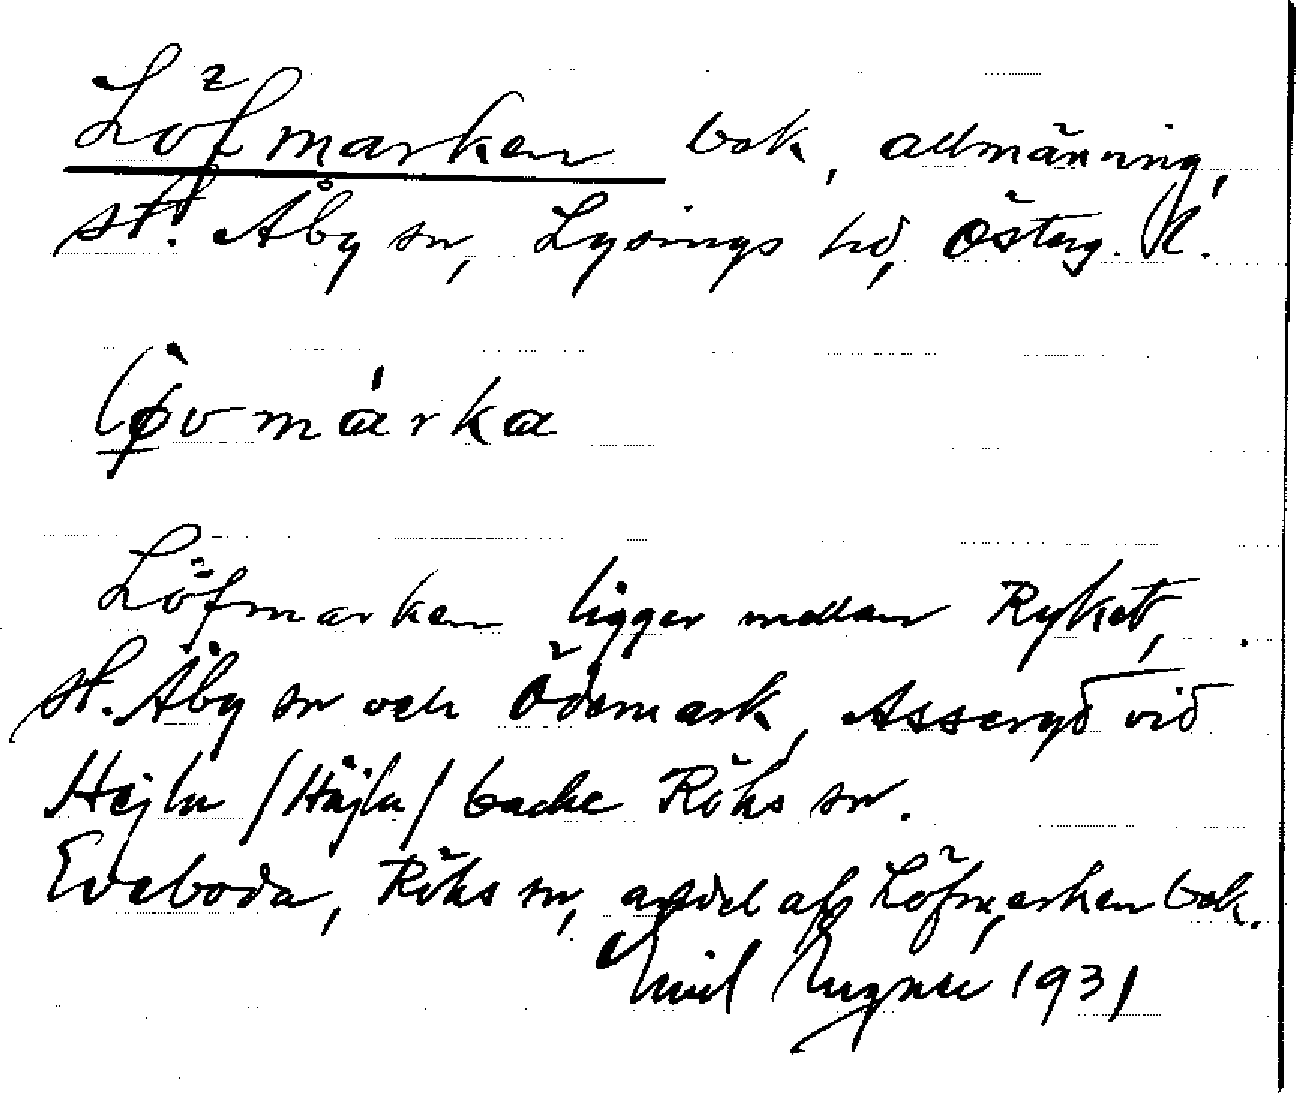 Löfmarken bok, allmänning,
St. Åby sn, Lysings hd, Österg. l.
Løvmárka
Löfmarken ligger mellan Ryket,
St. Åby sn och Ödemark, Asseryd vid
Hejlu /Häjlu/ backe Röks sn.
Eveboda, Röks sn, afdel af Löfmarken bok.
Emil 1931